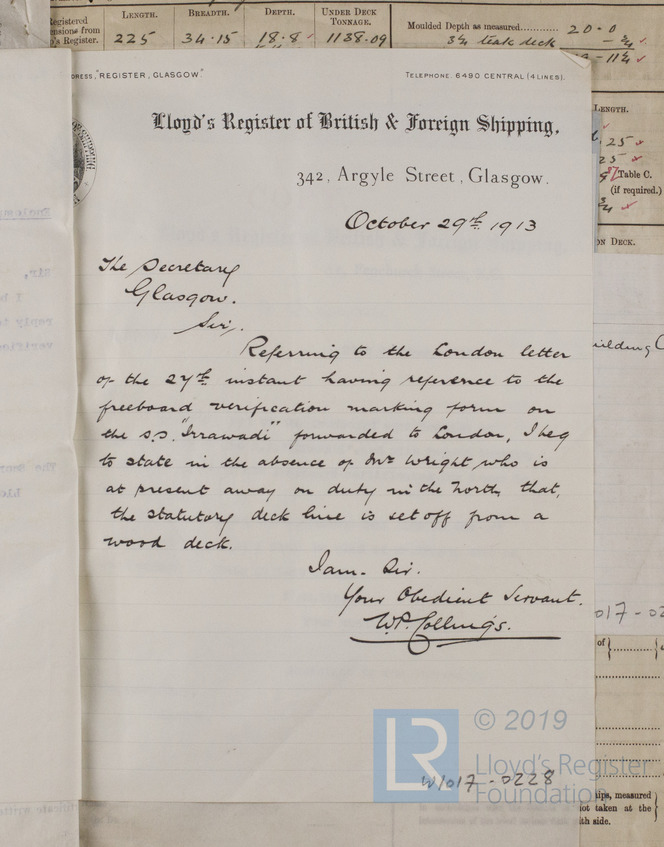 Registered
LENGTH.
BREADTH.
DEPTH.
UNDER DECK
TONNAGE.
Register.
225 34.15 18.8 1138.09
Moulded Depth as measured 20-0
3¾ teak deck
"REGISTER, GLASGOW."
TELEPHONE. 6490 CENTRAL (4 LINES).
Lloyd's Register of British & Foreign Shipping,
342, Argyle Street, Glasgow.
October 29th 1913
The Secretary
Glasgow.
Sir,
Referring to the London letter
of the 27th instant having reference to the
freeboard verification marking form on
the s.s. "Irrawadi" forwarded to London, I beg
to state in the absence of Mr Wright who is
at present away on duty in the North, that,
the statutory deck line is set off from a
wood deck.
I am. Sir.
Your Obedient Servant.
W.P. Collings.
LENGTH.
25
25
Table C.
(if required.)
¾
ON DECK.
017-02
of
LR
© 2019
Lloyd's Register
Foundation
W/017-0228
ships, measured
not taken at the
side.